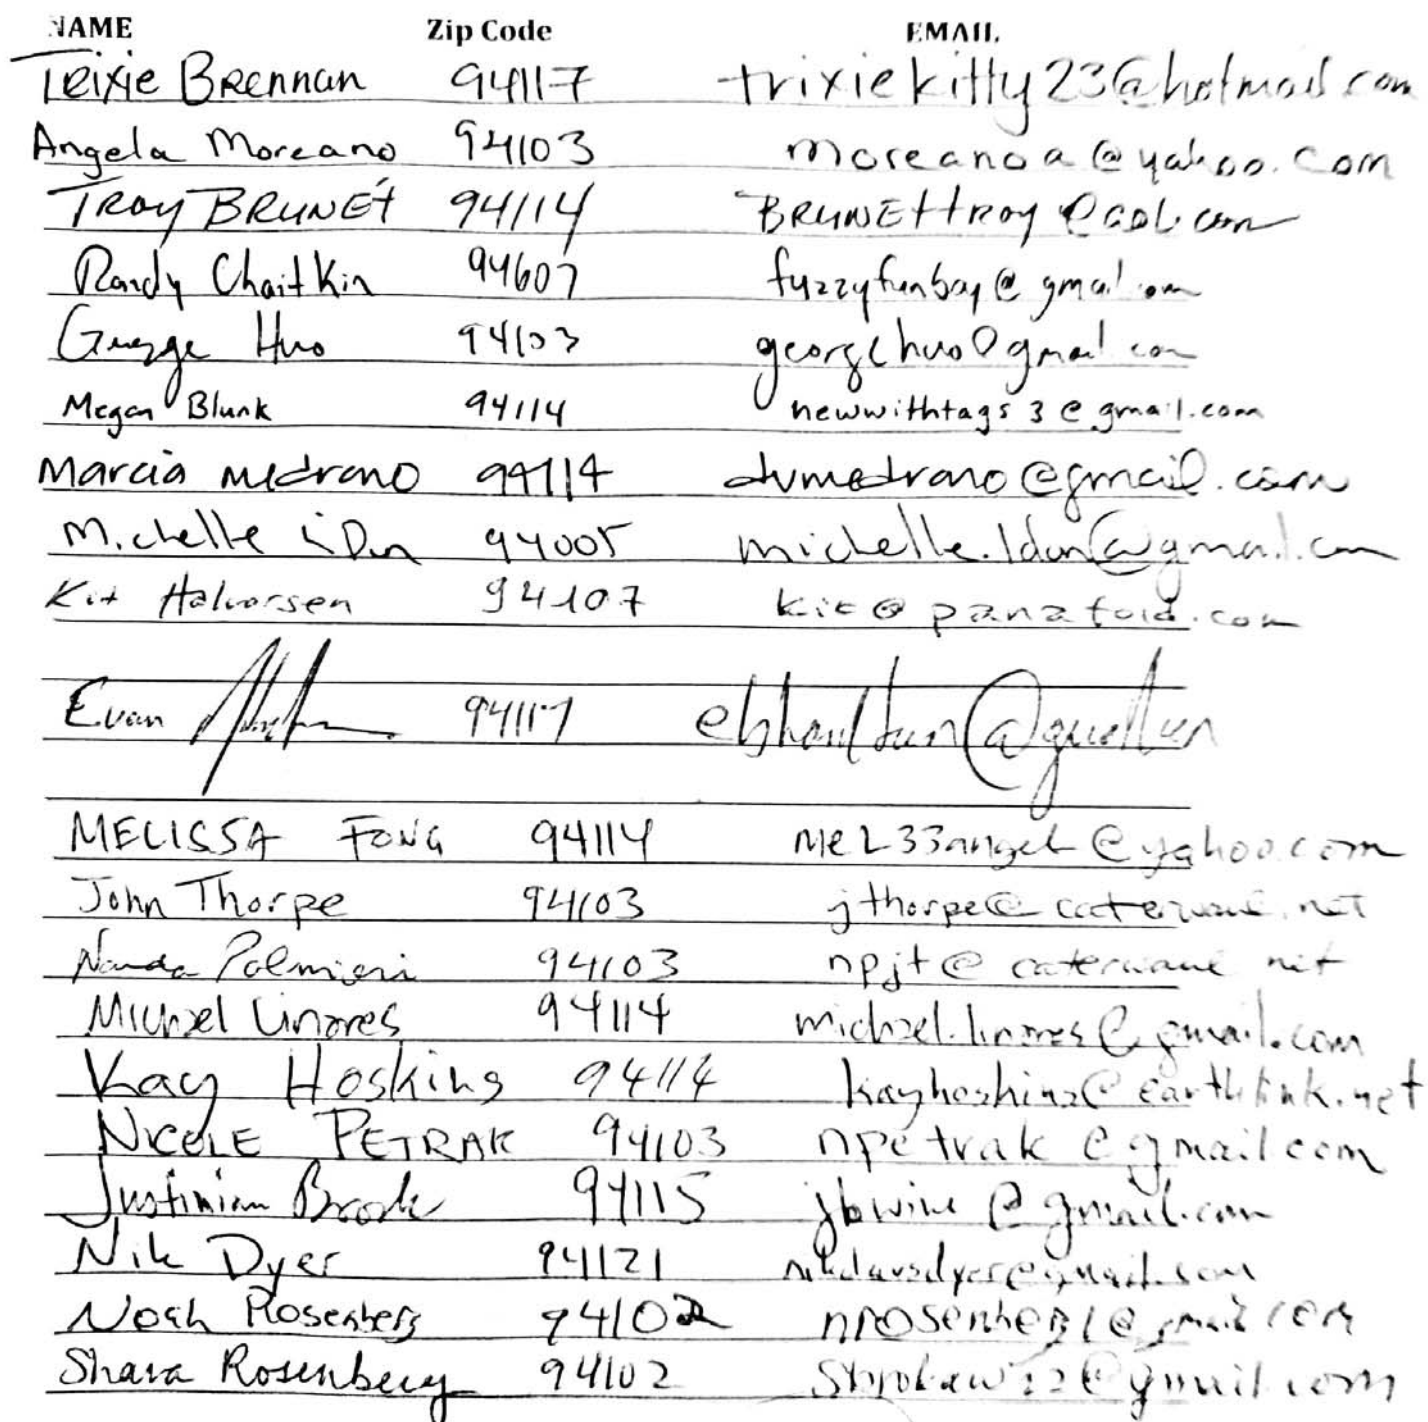 NAME Zip Code EMAIL
Trixie Brennan 94117 trixiekitty23@hotmail.com
Angela Moreano 94103 moreanoa@yahoo.com
TROY BRUNET 94114 BRUNETtROY@aol.com
Randy Chaitkin 94607 fuzzyfunboy@gmail.com
George Huo 94103 georgehuo@gmail.com
Megan Blunk 94114 newwithtags3@gmail.com
Marcia Medrano 94114 dvmedrano@gmail.com
Michelle 94005
Kit Halvorsen 94107 kit@panafold.com
Evan 94117
MELISSA FONG 94114 mel33angel@yahoo.com
John Thorpe 94103 jthorpe@caterwaul.net
Nanda Palmieri 94103 npjt@caterwaul.net
Michael Linares 94114 michael.linares@gmail.com
Kay Hoskins 94114 kayhoskins@earthlink.net
NICOLE PETRAK 94103 npetrak@gmail.com
Justinian Brook 94115 @gmail.com
Nik Dyer 94121
Noah Rosenberg 94102
Shara Rosenberg 94102